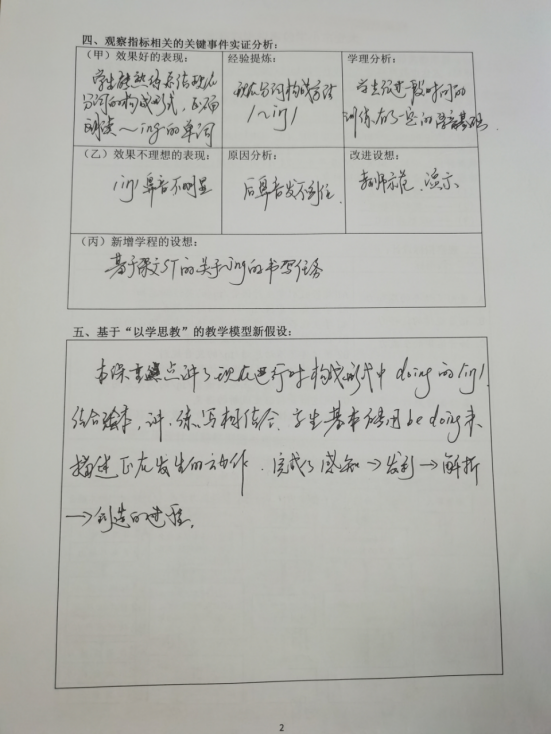 四、观察指标相关的关键事件实证分析：
（甲）效果好的表现：
学生能熟练系统现在
分词的构成形式，正确
朗读～ing的单词
经验提炼：
现在分词构成方法
/～iŋ/
学理分析：
学生经过一段时间的
训练，有了一定的语音基础。
（乙）效果不理想的表现：
/iŋ/鼻音不明显
原因分析：
后鼻音发不到位
改进设想：
教师示范、演示
（丙）新增学程的设想：
基于课文ST的关于ing的书写任务
五、基于“以学思教”的教学模型新假设：
本课重点讲了现在进行时构成形式中doing的/iŋ/
结合绘本，讲、练、写相结合，学生基本能用be doing来
描述正在发生的动作．完成了感知→发到→解析
→创造的过程。
2